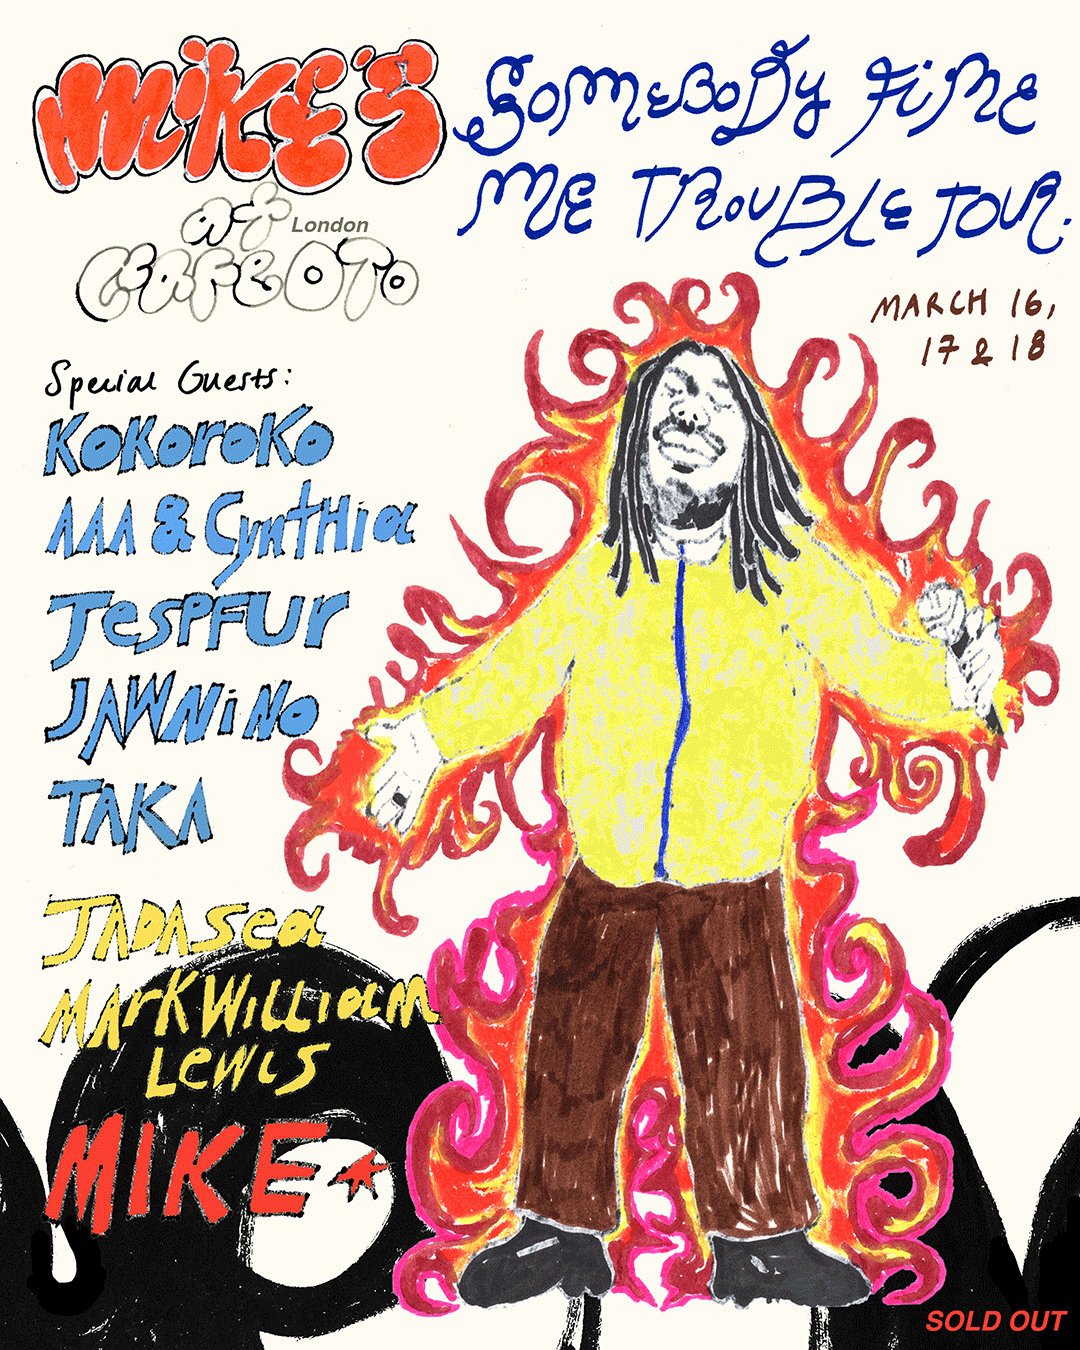 MIKE'S
at London
CAFE OTO
SOMEBODY FINE
ME TROUBLE TOUR.
MARCH 16,
17 & 18
Special Guests:
KOKOROKO
AAA & CYNTHIA
JESPFUR
JAWNINO
TAKA
JADASEA
MARKWILLIAM
LEWIS
MIKE
SOLD OUT